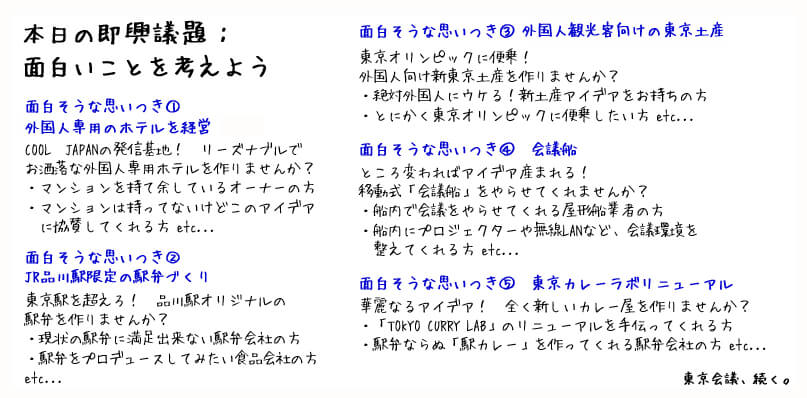 本日の即興議題；
面白いことを考えよう
面白そうな思いつき①
外国人専用のホテルを経営
COOL JAPANの発信基地！ リーズナブルで
お洒落な外国人専用ホテルを作りませんか？
・マンションを持て余しているオーナーの方
・マンションは持ってないけどこのアイデア
に協賛してくれる方 etc...
面白そうな思いつき②
JR品川駅限定の駅弁づくり
東京駅を超えろ！ 品川駅オリジナルの
駅弁を作りませんか？
・現状の駅弁に満足出来ない駅弁会社の方
・駅弁をプロデュースしてみたい食品会社の方
etc...
面白そうな思いつき③ 外国人観光客向けの東京土産
東京オリンピックに便乗！
外国人向け新東京土産を作りませんか？
・絶対外国人にウケる！新土産アイデアをお持ちの方
・とにかく東京オリンピックに便乗したい方 etc...
面白そうな思いつき④ 会議船
ところ変わればアイデア産まれる！
移動式「会議船」をやらせてくれませんか？
・船内で会議をやらせてくれる屋形船業者の方
・船内にプロジェクターや無線LANなど、会議環境を
整えてくれる方 etc...
面白そうな思いつき⑤ 東京カレーラボリニューアル
華麗なるアイデア！ 全く新しいカレー屋を作りませんか？
・「TOKYO CURRY LAB」のリニューアルを手伝ってくれる方
・駅弁ならぬ「駅カレー」を作ってくれる駅弁会社の方 etc...
東京会議、続く。